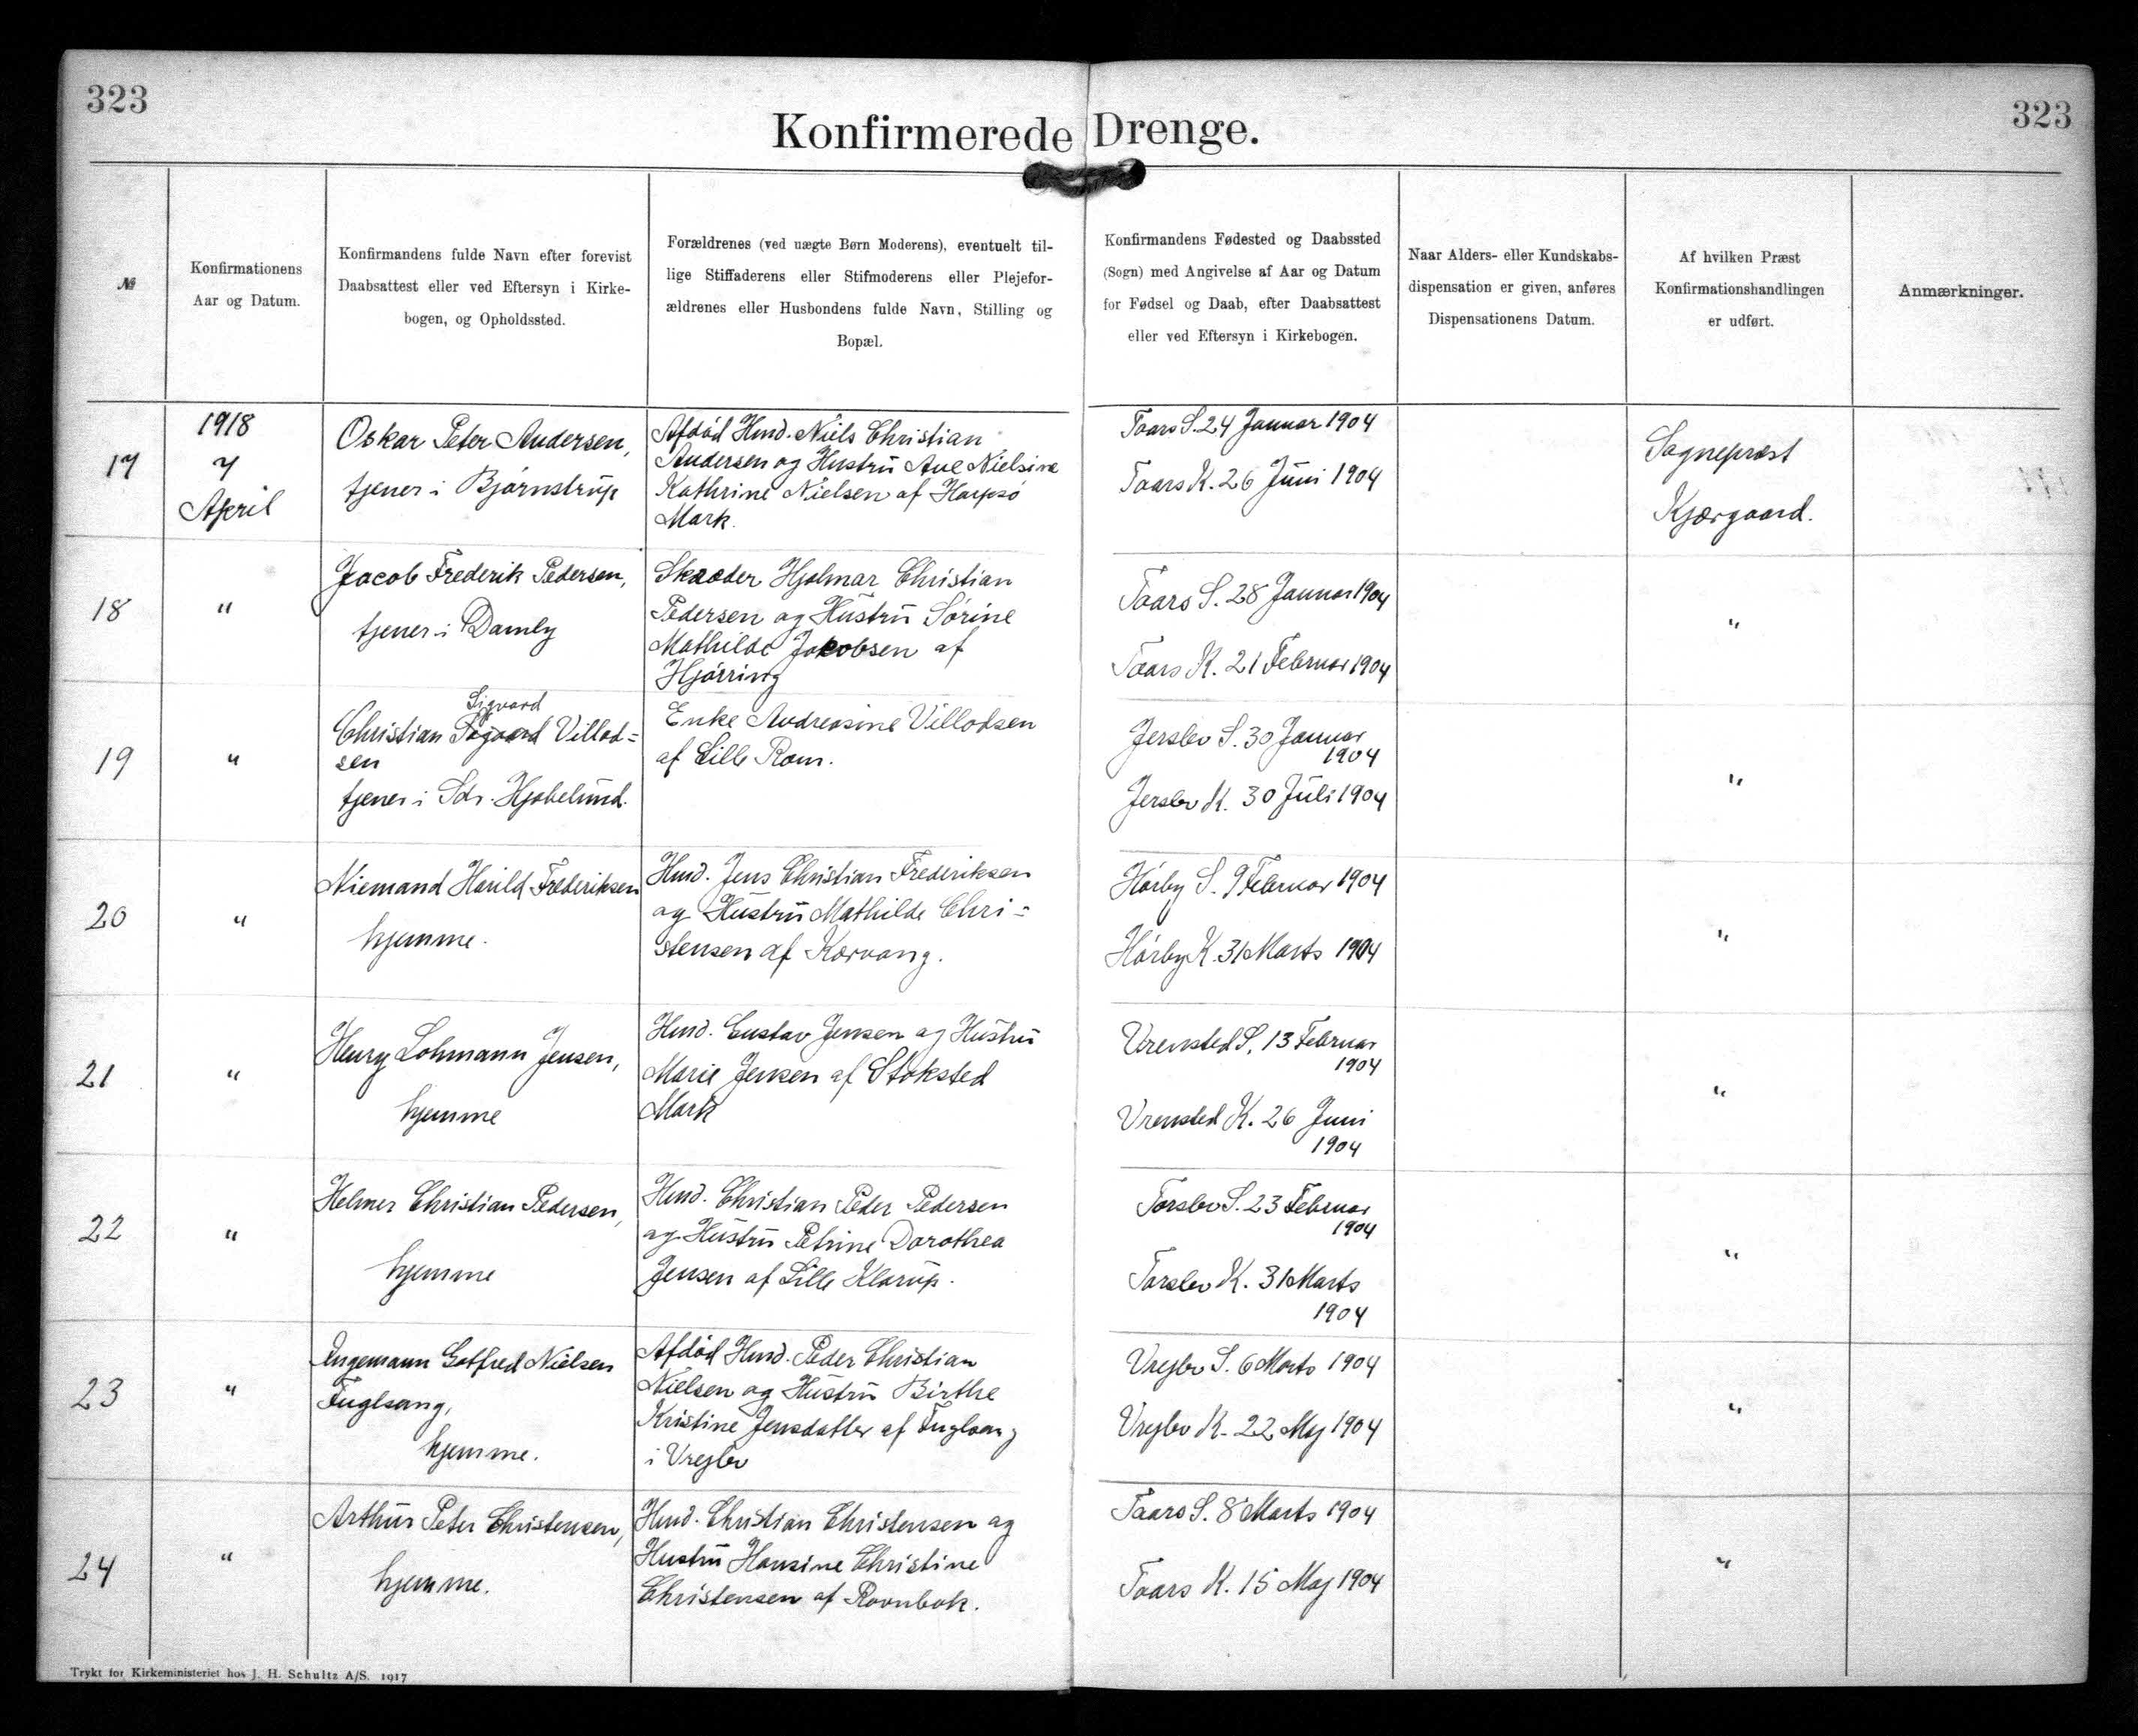 323
323
Konfirmerede Drenge.
№
Konfirmationens
Aar og Datum.
Konfirmandens fulde Navn efter forevist
Daabsattest eller ved Eftersyn i Kirke-
bogen, og Opholdssted.
Forældrenes (ved uægte Børn Moderens), eventuelt til-
lige Stiffaderens eller Stifmoderens eller Plejefor-
ældrenes eller Husbondens fulde Navn, Stilling og
Bopæl.
Konfirmandens Fødested og Daabssted
(Sogn) med Angivelse af Aar og Datum
for Fødsel og Daab, efter Daabsattest
eller ved Eftersyn i Kirkebogen.
Naar Alders- eller Kundskabs-
dispensation er given, anføres
Dispensationens Datum.
Af hvilken Præst
Konfirmationshandlingen
er udført.
Anmærkninger.
17
1918
7
April
Oskar Peter Andersen,
tjener i Bjørnstrup
Afdød Hmd. Niels Christian
Andersen og Hustru Ane Nielsine
Kathrine Nielsen af Harpsø
Mark.
Taars S. 24 Januar 1904
Taars K. 26 Juni 1904
Sognepræst
Kjærgaard.
18
"
Jacob Frederik Pedersen,
tjener i Damly
Skræder Hjalmar Christian
Pedersen og Hustru Sørine
Mathilde Jakobsen af
Hjørring
Taars S. 28 Januar 1904
Taars K. 21 Februar 1904
"
19
"
Sigvard
Christian Villad=
sen
tjener i Sdr. Hjobelund.
Enke Andreasine Villadsen
af Lille Rom.
Jerslev S. 30 Januar
1904
Jerslev K. 30 Juli 1904
"
20
"
Niemand Harild Frederiksen
hjemme.
Hmd. Jens Christian Frederiksen
og Hustru Mathilde Chri=
stensen af Kærvang.
Hørby S. 9 Februar 1904
Hørby K. 31 Marts 1904
"
21
"
Henry Lohmann Jensen,
hjemme
Hmd. Gustav Jensen og Hustru
Marie Jensen af Stoksted
Mark
Vrensted S. 13 Februar
1904
Vrensted K. 26 Juni
1904
"
22
"
Helmer Christian Pedersen,
hjemme
Hmd. Christian Peder Pedersen
og Hustru Petrine Dorothea
Jensen af Lille Klarup.
Torslev S. 23 Februar
1904
Torslev K. 31 Marts
1904
"
23
"
Ingemann Gotfred Nielsen
Fuglsang,
hjemme.
Afdød Hmd. Peder Christian
Nielsen og Hustru Birthe
Kristine Jensdatter af Fuglsang
i Vrejlev
Vrejlev S. 6 Marts 1904
Vrejlev K. 22 Maj 1904
"
24
"
Arthur Peter Christensen,
hjemme.
Hmd. Christian Christensen og
Hustru Hansine Christine
Christensen af Ravnbak.
Taars S. 8 Marts 1904
Taars K. 15 Maj 1904
"
Trykt for Kirkeministeriet hos J. H. Schultz A/S. 1917